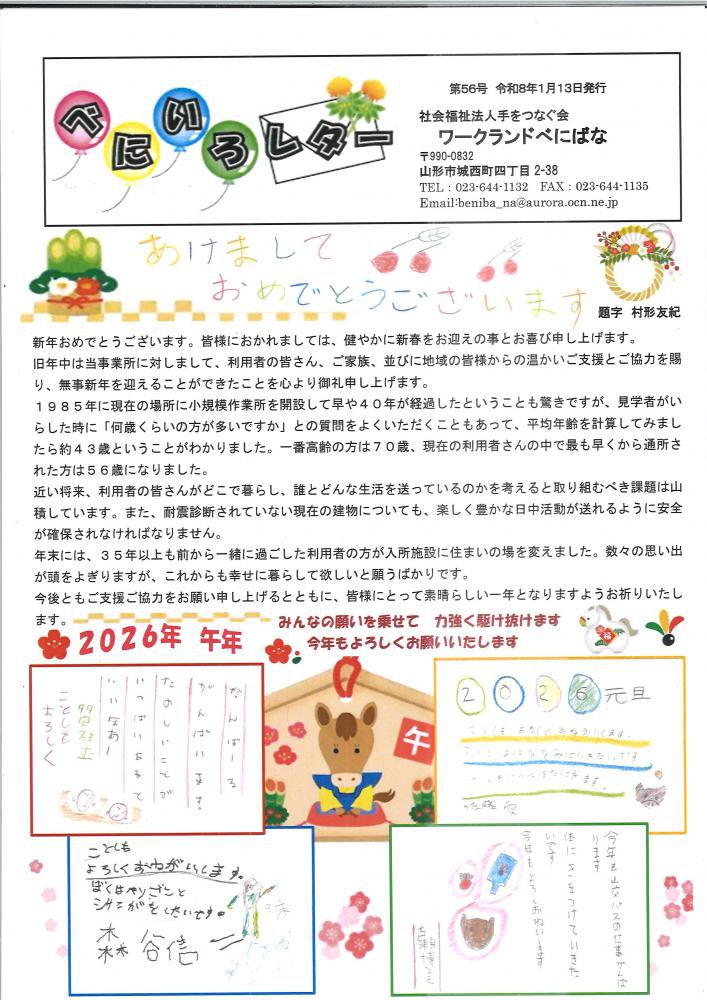 べにいろレター
第56号 令和8年1月13日発行
社会福祉法人手をつなぐ会
ワークランドべにばな
〒990-0832
山形市城西町四丁目 2-38
TEL：023-644-1132 FAX：023-644-1135
Email:beniba_na@aurora.ocn.ne.jp
あけまして
おめでとうございます
題字 村形友紀
新年おめでとうございます。皆様におかれましては、健やかに新春をお迎えの事とお喜び申し上げます。
旧年中は当事業所に対しまして、利用者の皆さん、ご家族、並びに地域の皆様からの温かいご支援とご協力を賜
り、無事新年を迎えることができたことを心より御礼申し上げます。
１９８５年に現在の場所に小規模作業所を開設して早や４０年が経過したということも驚きですが、見学者がい
らした時に「何歳くらいの方が多いですか」との質問をよくいただくこともあって、平均年齢を計算してみまし
たら約４３歳ということがわかりました。一番高齢の方は７０歳、現在の利用者さんの中で最も早くから通所さ
れた方は５６歳になりました。
近い将来、利用者の皆さんがどこで暮らし、誰とどんな生活を送っているのかを考えると取り組むべき課題は山
積しています。また、耐震診断されていない現在の建物についても、楽しく豊かな日中活動が送れるように安全
が確保されなければなりません。
年末には、３５年以上も前から一緒に過ごした利用者の方が入所施設に住まいの場を変えました。数々の思い出
が頭をよぎりますが、これからも幸せに暮らして欲しいと願うばかりです。
今後ともご支援ご協力をお願い申し上げるとともに、皆様にとって素晴らしい一年となりますようお祈りいたし
ます。
みんなの願いを乗せて 力強く駆け抜けます
2026年 午年
今年もよろしくお願いいたします
福
午
がんばーる
がんばります。
たのしいことが
いっぱいあるて
いいなあー
ことしも
よろしく
2026元旦
ことしもよろしくおねがいします。
佐藤 愛
ことしも
よろしくおねがいします。
ぼくはやりごとと
しゃこがをしたいです。
森谷信
今年も山交バスの仕事がんば
ります
体にきをつけていきた
いです
今年もよろしくおねがいします